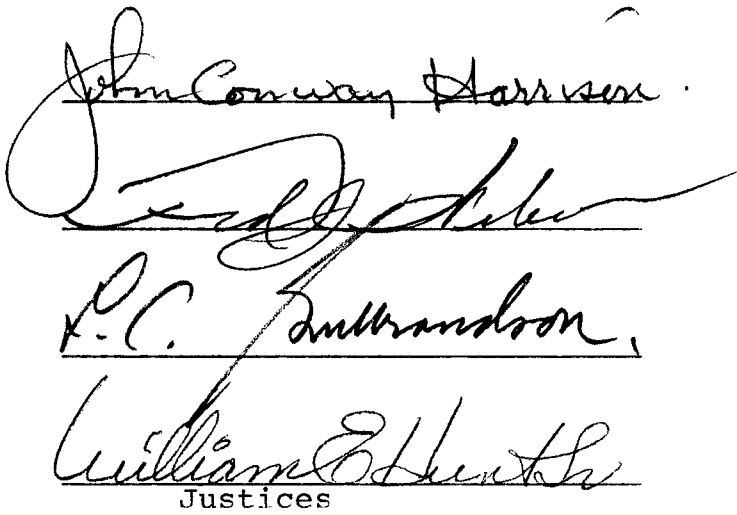 John Conway Harrison.
Fred J Weber
L. C. Gulbrandson.
William E Hunt Sr
Justices